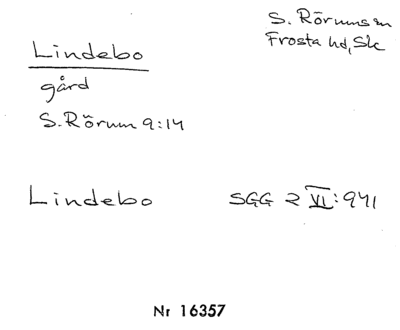 Lindebo
gård
S. Rörum 9:14
S. Rörums sn
Frosta hd, Sk
Lindebo SGG 2 VI: 941
Nr 16357